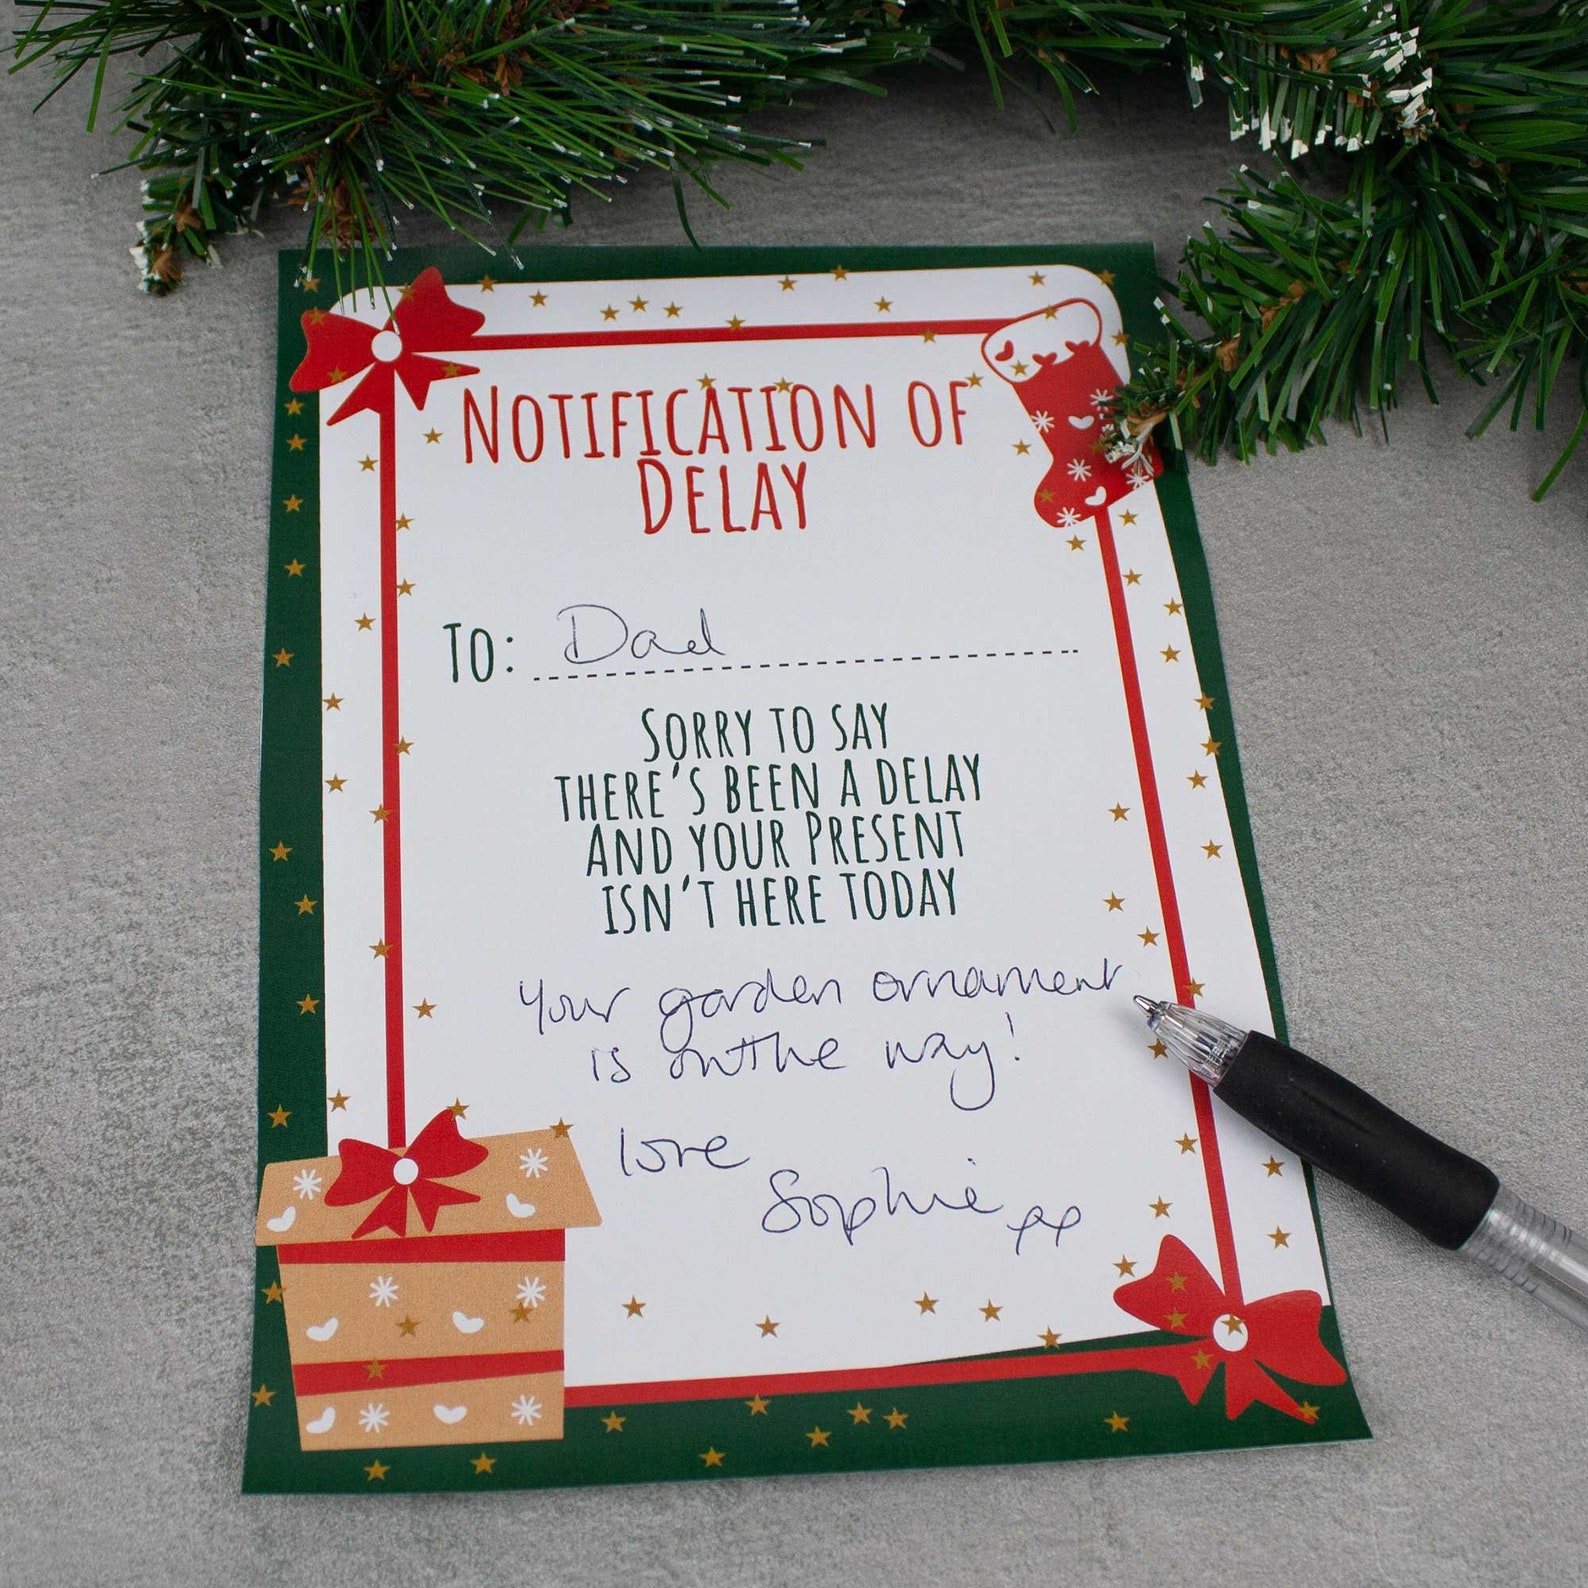 NOTIFICATION OF
DELAY
TO: Dad
SORRY TO SAY
THERE'S BEEN A DELAY
AND YOUR PRESENT
ISN'T HERE TODAY
Your garden ornament
is on the way!
love
Sophie xx